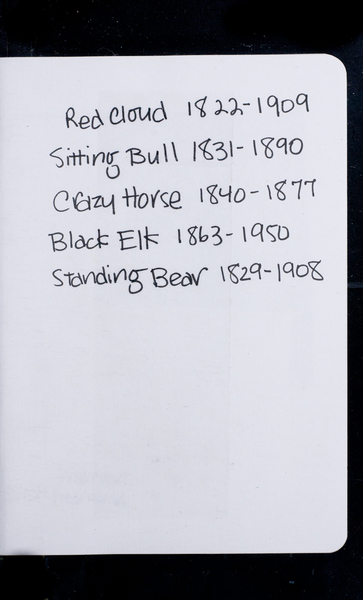 Red Cloud 1822-1909
Sitting Bull 1831-1890
Crazy Horse 1840-1877
Black Elk 1863-1950
Standing Bear 1829-1908